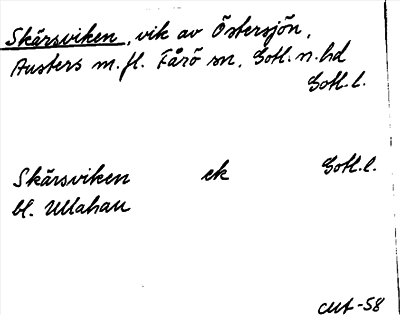 Skärsviken, vik av Östersjön,
Austers m.fl. Fårö sn, Gotl. n. hd
Gotl. l.
Skärsviken ek Gotl. l.
bl. Ullahau
CMf-58